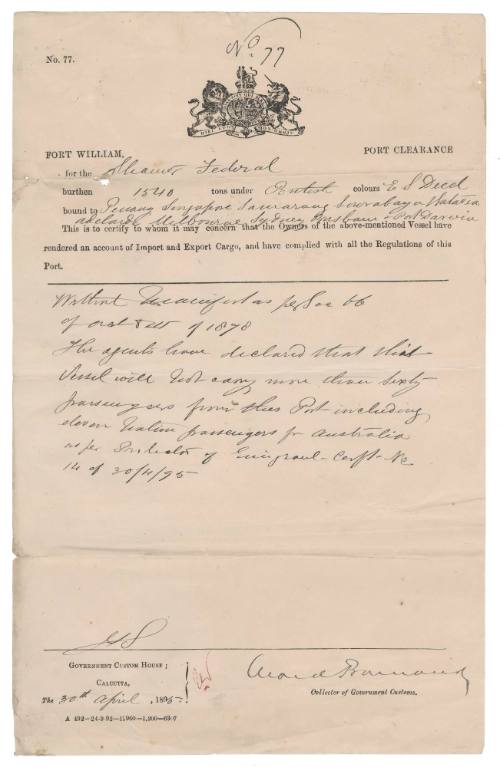 No. 77
No. 77.
FORT WILLIAM, PORT CLEARANCE
for the Steamer Federal
burthen 1540 tons under British colours E S Deed
bound to Penang Singapore Samarang Sourabaya Batavia
adelaide Melbourne Sydney Brisbane & Port Darwin
This is to certify to whom it may concern that the Owners of the above-mentioned Vessel have
rendered an account of Import and Export Cargo, and have complied with all the Regulations of this
Port.
Without Manifest as per Sec 66
of act of 1878
The agents have declared that this
Vessel will not carry more than sixty
passengers from this Port including
eleven Native passengers for Australia
as per Protector of Emigrant Certf. No
14 of 30/4/95
GOVERNMENT CUSTOM HOUSE;
CALCUTTA,
The 30th April, 1895.
Collector of Government Customs.